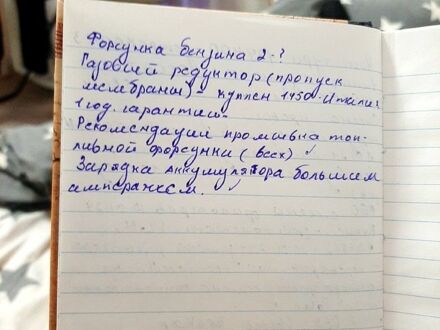 Форсунка бензина 2-?
Газовый редуктор (пропуск
мембраны) куплен 1450- Италия
1 год. гарантии-
Рекомендации промывка топ-
ливной форсунки (всех) ✓
Зарядка аккумулятора большием
амперажем. ✓